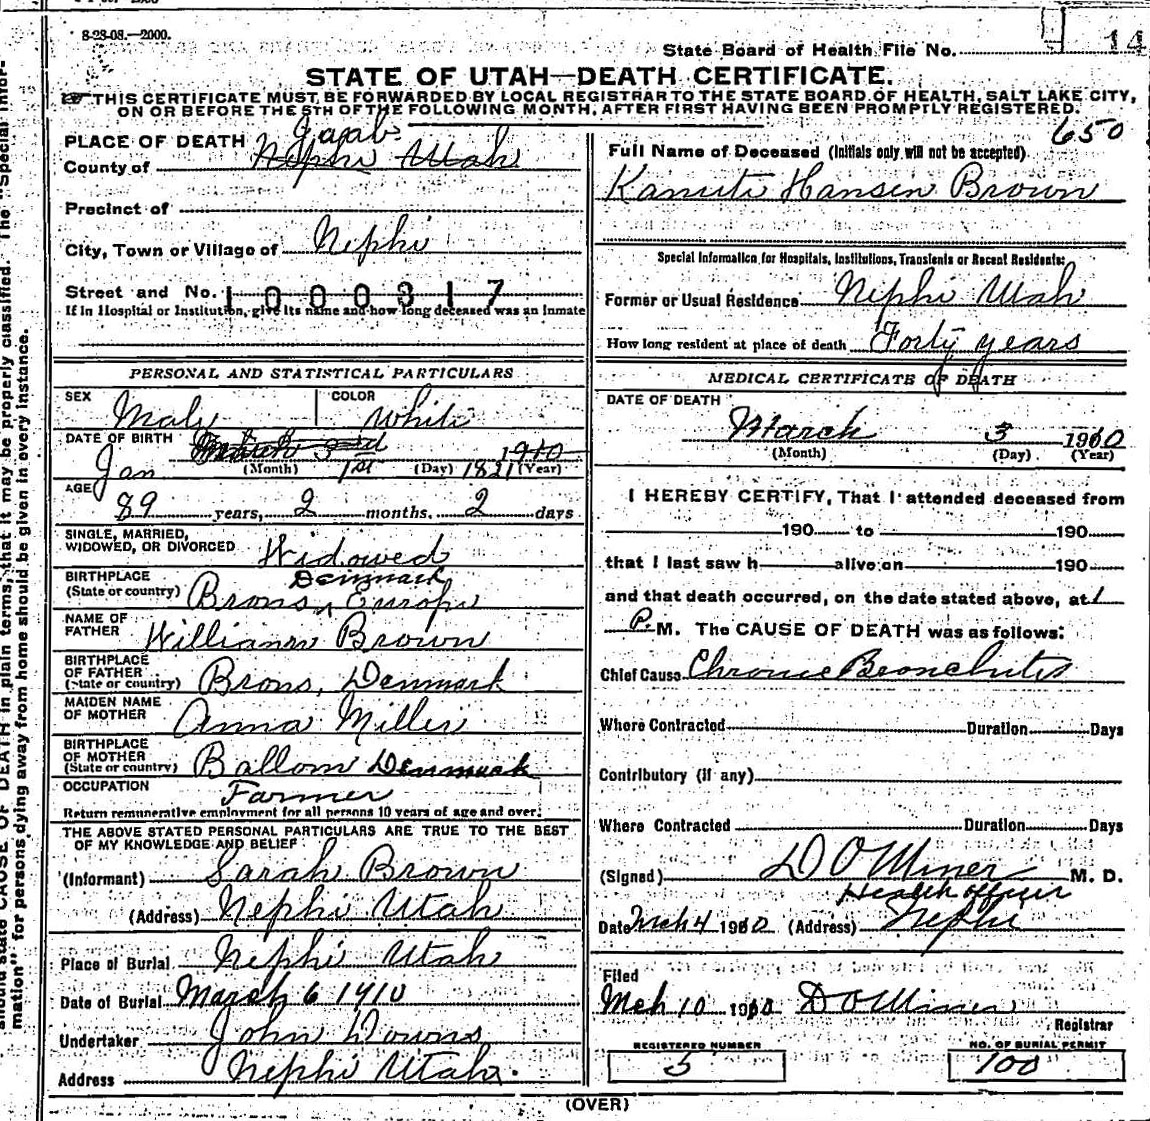 8-23-08.—2000.
State Board of Health File No. 14
STATE OF UTAH—DEATH CERTIFICATE.
THIS CERTIFICATE MUST BE FORWARDED BY LOCAL REGISTRAR TO THE STATE BOARD OF HEALTH, SALT LAKE CITY,
ON OR BEFORE THE 5TH OF THE FOLLOWING MONTH, AFTER FIRST HAVING BEEN PROMPTLY REGISTERED.
650
PLACE OF DEATH Juab
County of Nephi Utah
Precinct of
City, Town or Village of Nephi
Street and No. 1000317
If in Hospital or Institution, give its name and how long deceased was an inmate
PERSONAL AND STATISTICAL PARTICULARS
SEX Male COLOR White
DATE OF BIRTH March 3rd 1910
Jan 1st 1821
(Month) (Day) (Year)
AGE 89 years, 2 months, 2 days
SINGLE, MARRIED,
WIDOWED, OR DIVORCED Widowed
BIRTHPLACE Denmark
(State or country) Brons, Europe
NAME OF
FATHER William Brown
BIRTHPLACE
OF FATHER
(State or country) Brons, Denmark
MAIDEN NAME
OF MOTHER Anna Miller
BIRTHPLACE
OF MOTHER
(State or country) Ballom Denmark
OCCUPATION Farmer
Return remunerative employment for all persons 10 years of age and over.
THE ABOVE STATED PERSONAL PARTICULARS ARE TRUE TO THE BEST
OF MY KNOWLEDGE AND BELIEF
(Informant) Sarah Brown
(Address) Nephi Utah
Place of Burial Nephi Utah
Date of Burial March 6 1910
Undertaker John Downs
Address Nephi Utah.
Full Name of Deceased (Initials only will not be accepted)
Kanute Hansen Brown
Special Information for Hospitals, Institutions, Transients or Recent Residents:
Former or Usual Residence Nephi Utah
How long resident at place of death Forty years
MEDICAL CERTIFICATE OF DEATH
DATE OF DEATH
March 3 1910
(Month) (Day) (Year)
I HEREBY CERTIFY, That I attended deceased from
190 to 190
that I last saw h alive on 190
and that death occurred, on the date stated above, at 1
P. M. The CAUSE OF DEATH was as follows:
Chief Cause Chronic Bronchitis
Where Contracted Duration Days
Contributory (if any)
Where Contracted Duration Days
(Signed) D O Miner M. D.
Health officer
Date Mch 4 1910 (Address) Nephi
Filed
Mch 10 1910 D O Miner
Registrar
REGISTERED NUMBER
5
NO. OF BURIAL PERMIT
100
(OVER)
should state CAUSE OF DEATH in plain terms, that it may be properly classified. The "Special Infor-
mation" for persons dying away from home should be given in every instance.